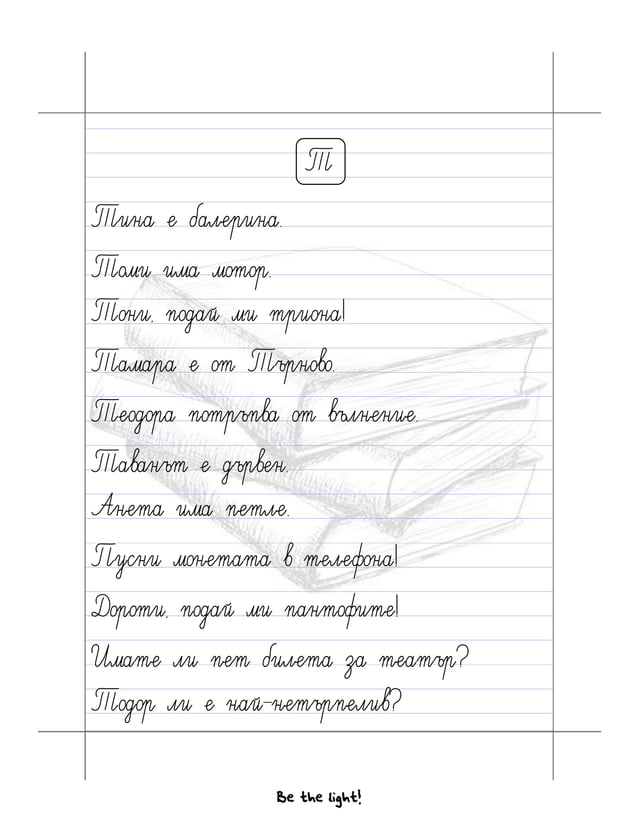 Т
Тина е балерина.
Томи има мотор.
Тони, подай ми триона!
Тамара е от Търново.
Теодора потръпва от вълнение.
Таванът е дървен.
Анета има петле.
Пусни монетата в телефона!
Дороти, подай ми пантофите!
Имате ли пет билета за театър?
Тодор ли е най-нетърпелив?
Be the light!